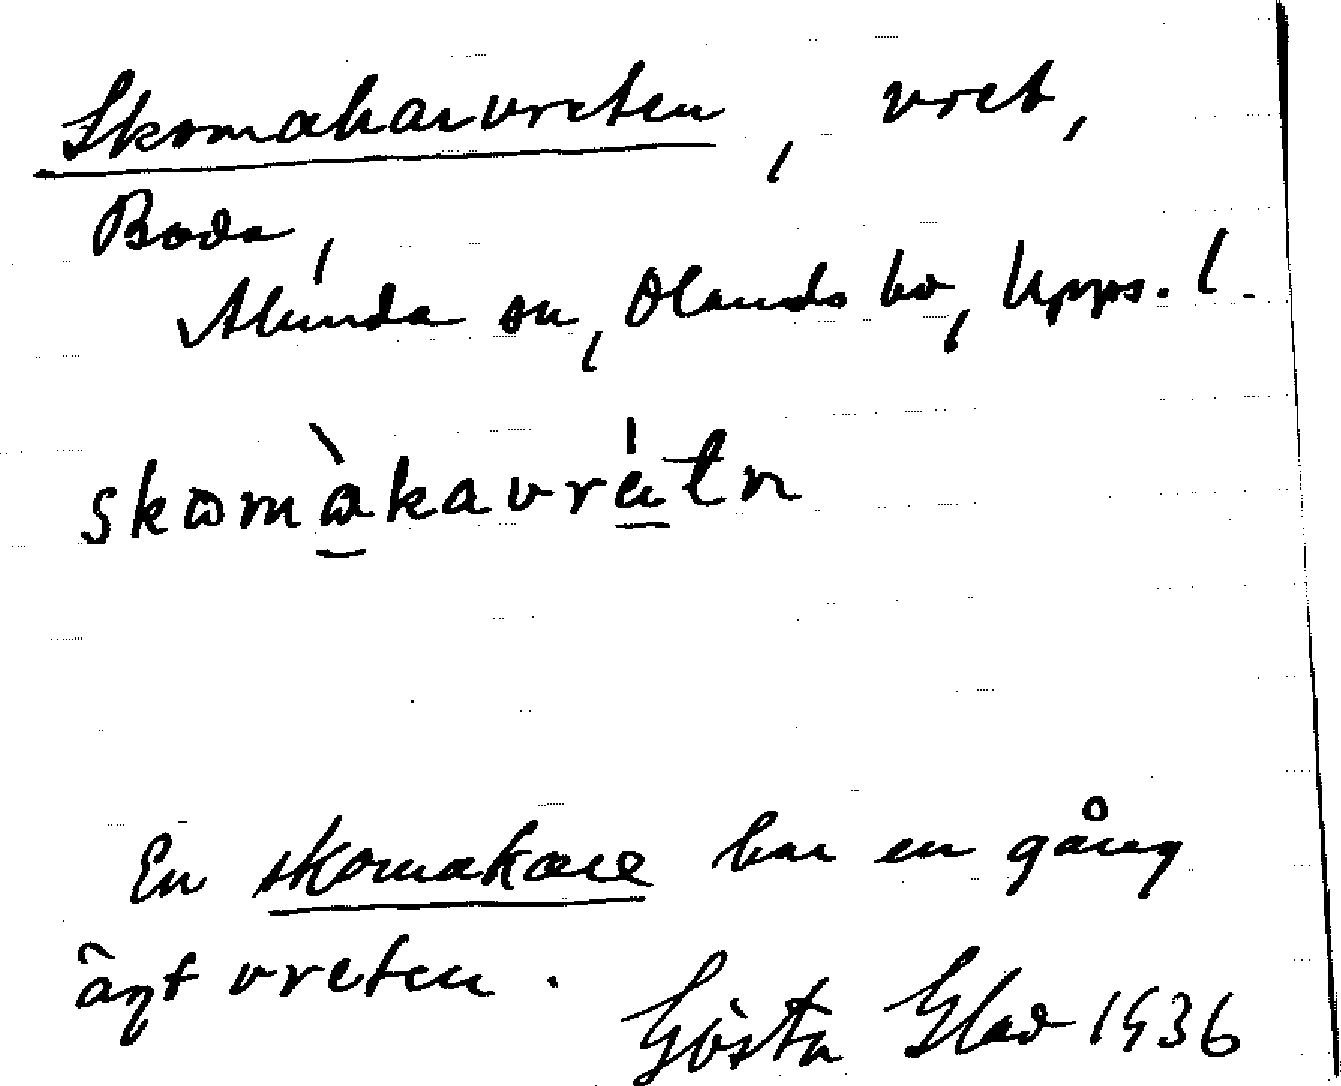 Skomakarvreten, vret,
Boda,
Alunda sn, Olands hd, Upps. l.
skomàkavrétn
En skomakare har en gång
ägt vreten.
Gösta Glad 1936